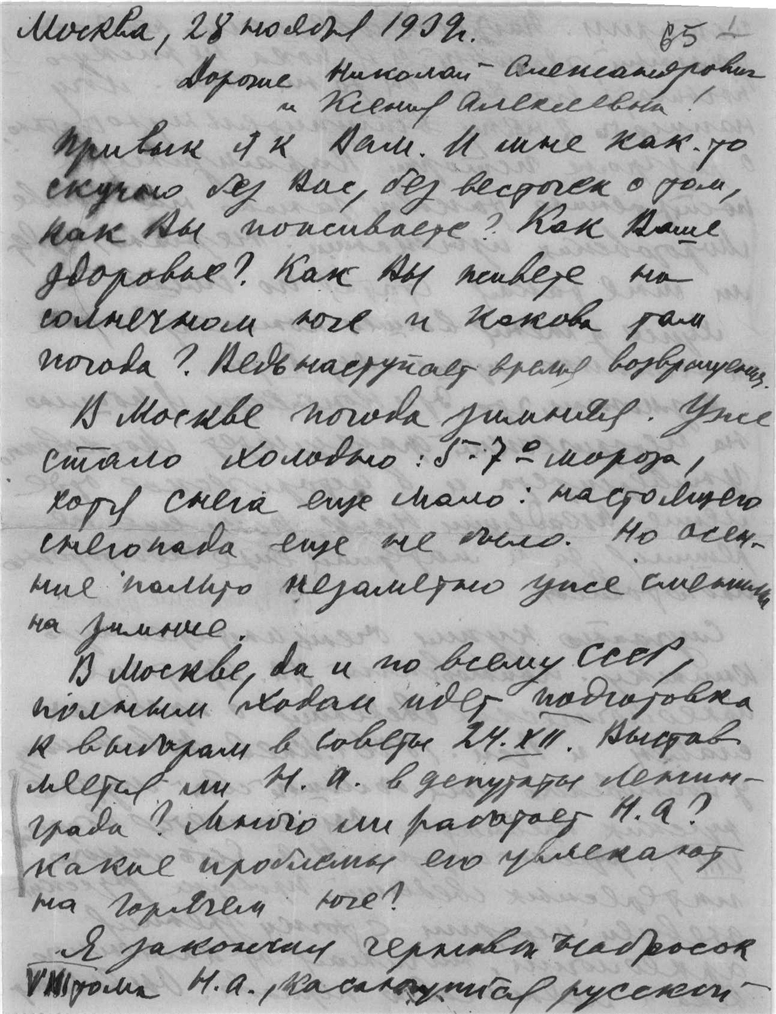 Москва, 28 ноября 1939г.
65
Дорогие Николай Александрович
и Ксения Алексеевна!
Привык я к Вам. И мне как-то
скучно без Вас, без весточек о том,
как Вы поживаете? Как Ваше
здоровье? Как Вы живете на
солнечном юге и какова там
погода? Ведь наступает время возвращения.
В Москве погода зимняя. Уже
стало холодно: 5-7º мороза,
хотя снега еще мало: настоящего
снегопада еще не было. Но осен-
ние пальто незаметно уже сменили
на зимние.
В Москве, да и по всему СССР,
полным ходом идет подготовка
к выборам в советы 24.XII. Выстав-
ляется ли Н. А. в депутаты Ленин-
града? Много ли работает Н. А?
Какие проблемы его увлекают
на горячем юге?
Я закончил черновой набросок
VIII тома Н. А., касающийся русской